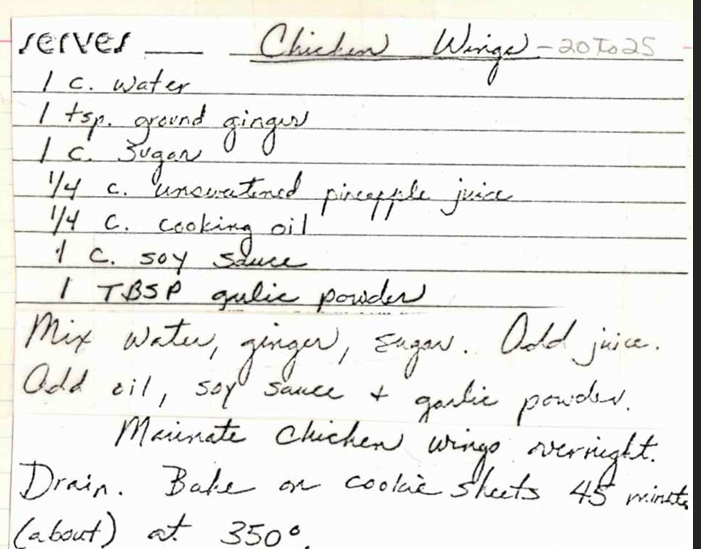 serves ___ Chicken Wings - 20 to 25
1 c. water
1 tsp. ground ginger
1 c. sugar
1/4 c. unsweatened pineapple juice
1/4 c. cooking oil
1 c. soy sauce
1 TBSP garlic powder
Mix water, ginger, sugar. Add juice.
Add oil, soy sauce + garlic powder.
Marinate chicken wings overnight.
Drain. Bake on cookie sheets 45 minutes
(about) at 350°.